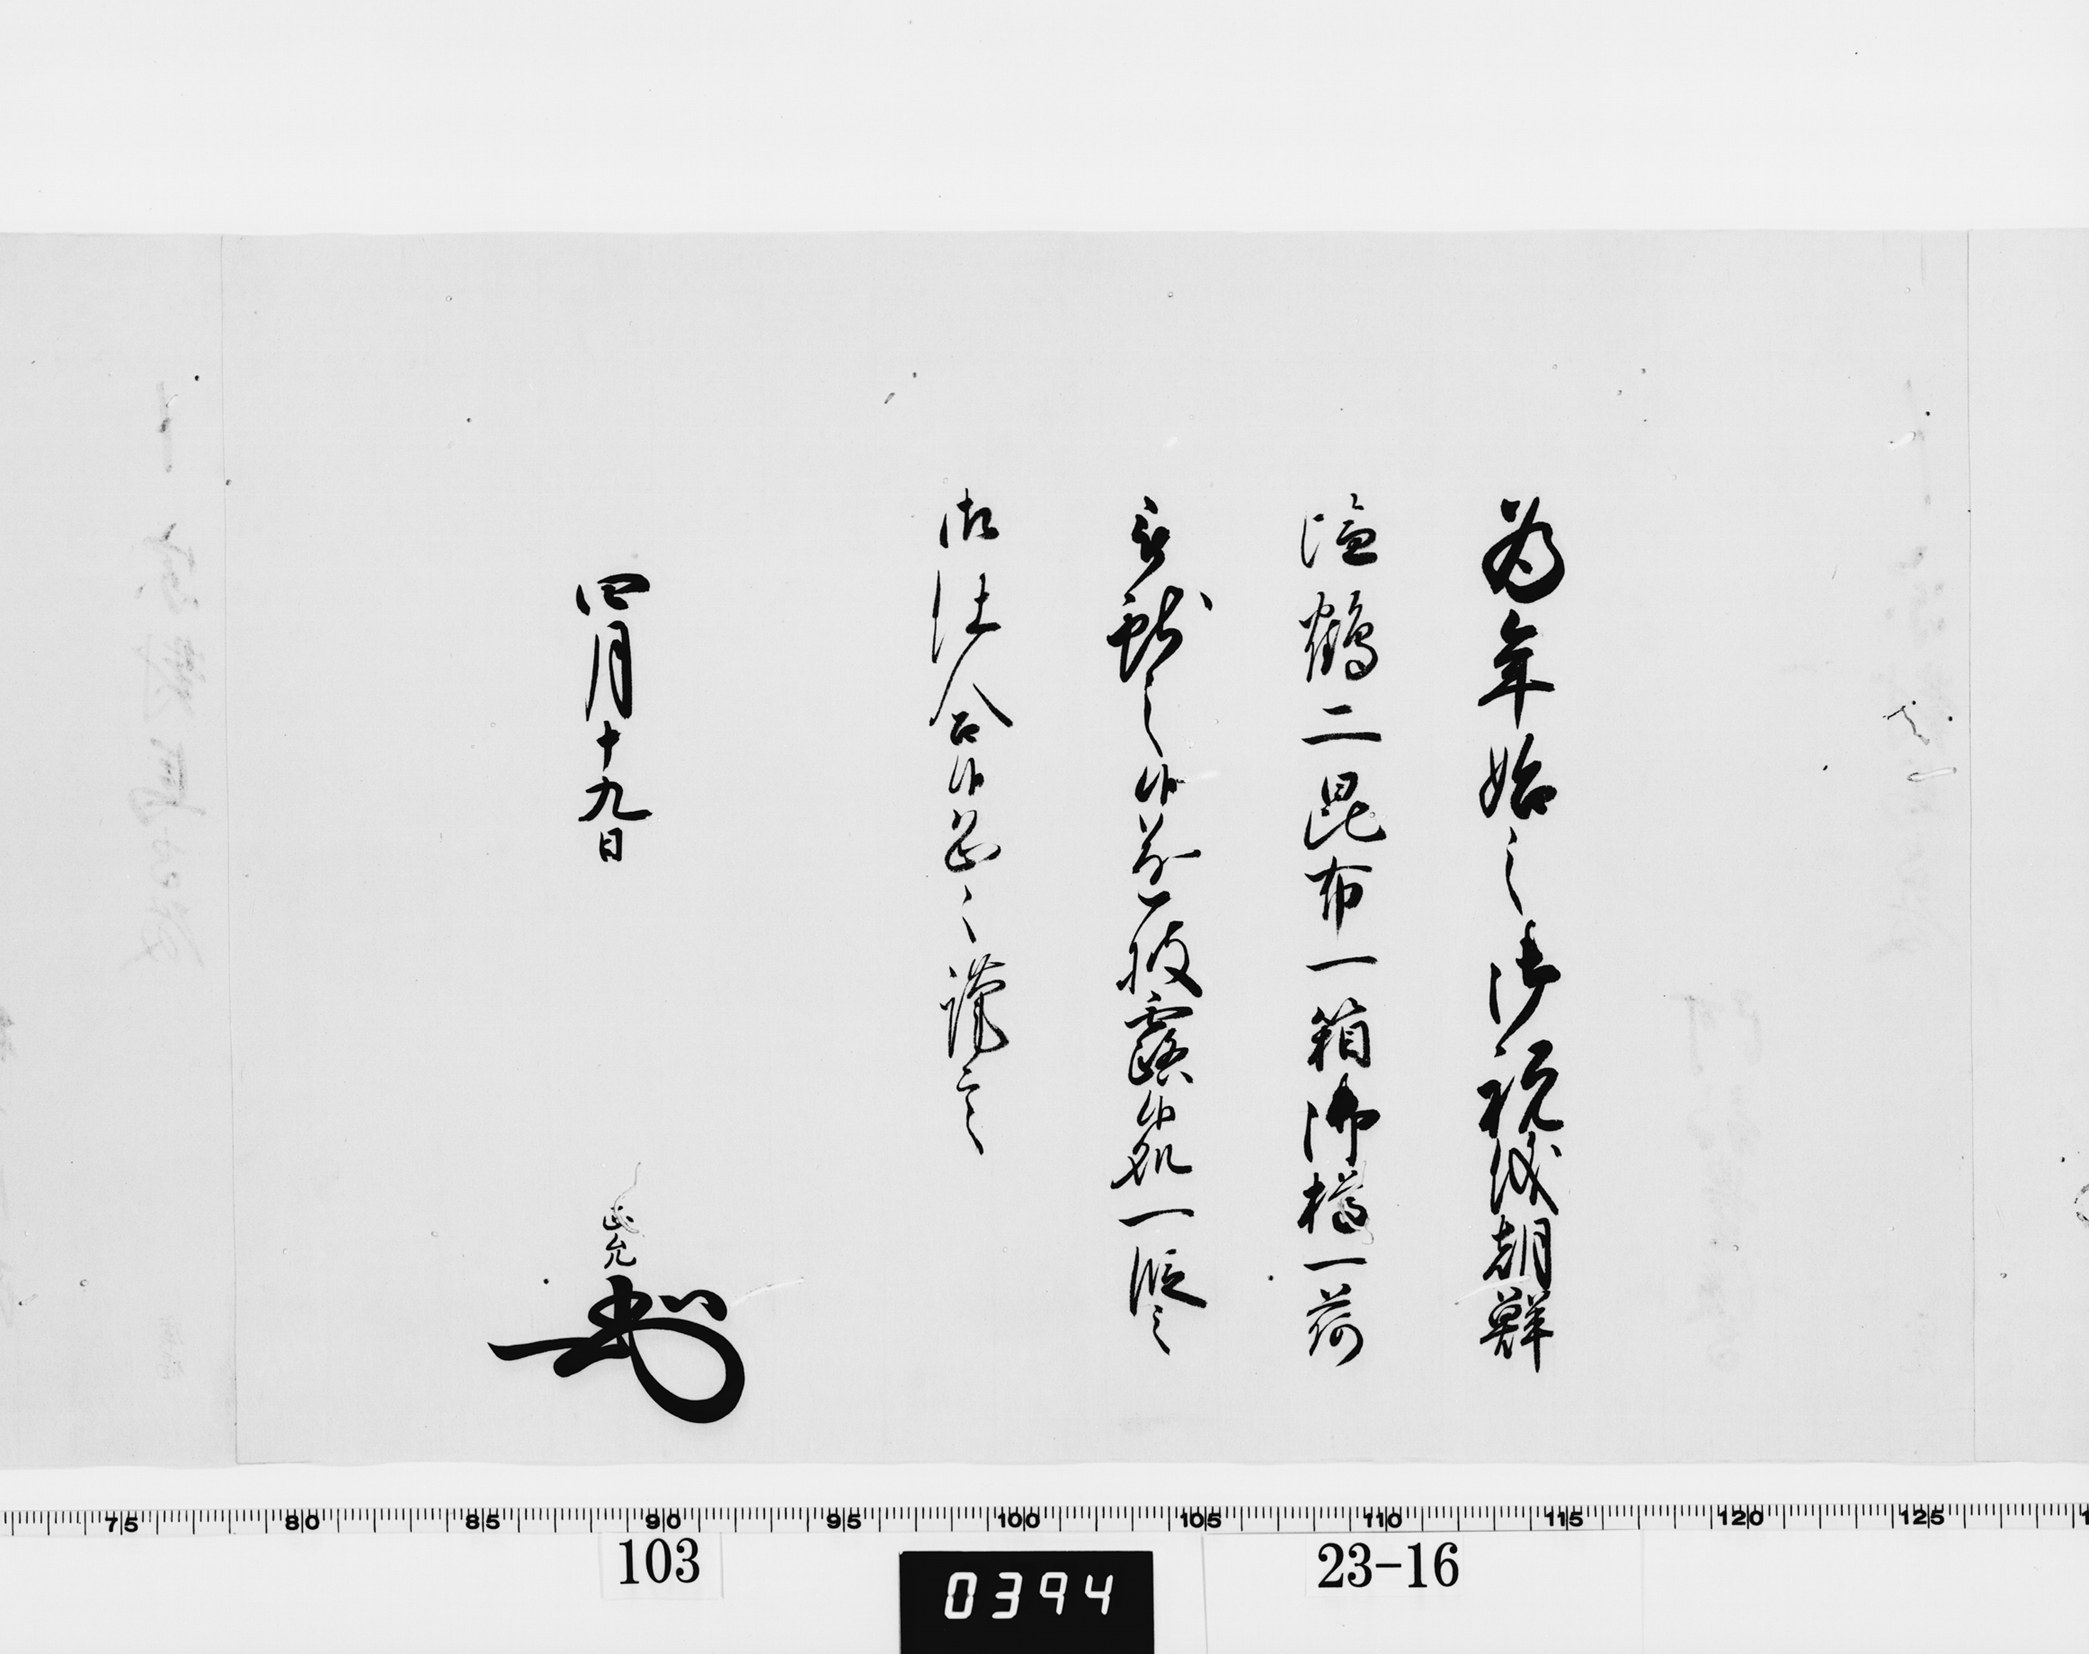 為年始之御祝儀朝鮮
塩鶴二昆布一箱御樽一荷
被献之候遂披露候処一段之
御仕合候恐々謹言
四月十九日
75 80 85 90 95 100 105 110 115 120 125
103
0394
23-16